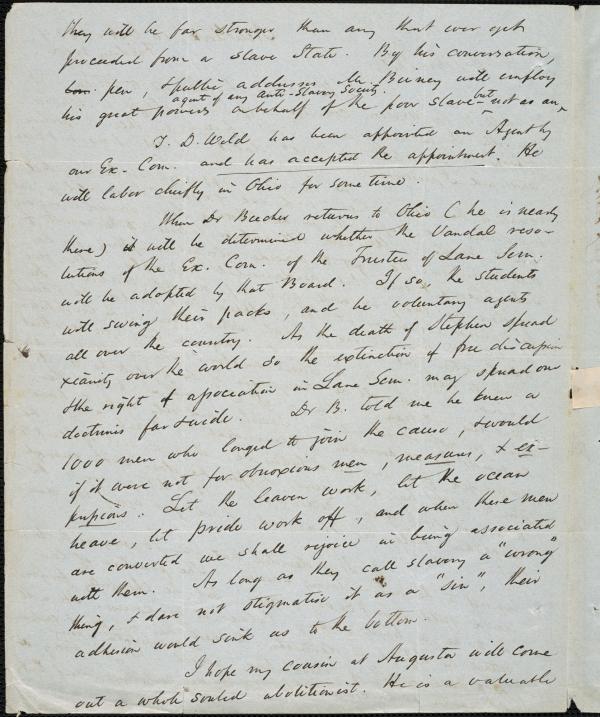 they will be far stronger than any that ever yet
proceeded from a slave State. By his conversation,
pen, & public addresses Mr. Birney will employ
agent of any Anti-Slavery Society.
his great powers on behalf of the poor slave - but not as an
T. D. Weld has been appointed an Agent by
our Ex. Com. and has accepted the appointment. He
will labor chiefly in Ohio for some time.
When Dr Beecher returns to Ohio (he is nearly
there) it will be determined whether the Vandal reso-
lutions of the Ex. Com. of the Trustees of Lane Sem.
will be adopted by that Board. If so, the students
will swing their packs, and be voluntary agents
all over the country. As the death of Stephen spread
xianity over the world so the extinction of free discussion
& the right of association in Lane Sem. may spread our
doctrines far & wide. Dr B. told me he knew a
1000 men who longed to join the cause, & would
if it were not for obnoxious men, measures, & ex-
pressions. Let the leaven work, let the ocean
heave, let pride work off, and when these men
are converted we shall rejoice in being associated
with them. As long as they call slavery a "wrong"
thing, & dare not stigmatise it as a "sin", their
adhesion would sink us to the bottom.
I hope my cousin at Augusta will come
out a whole souled abolitionist. He is a valuable